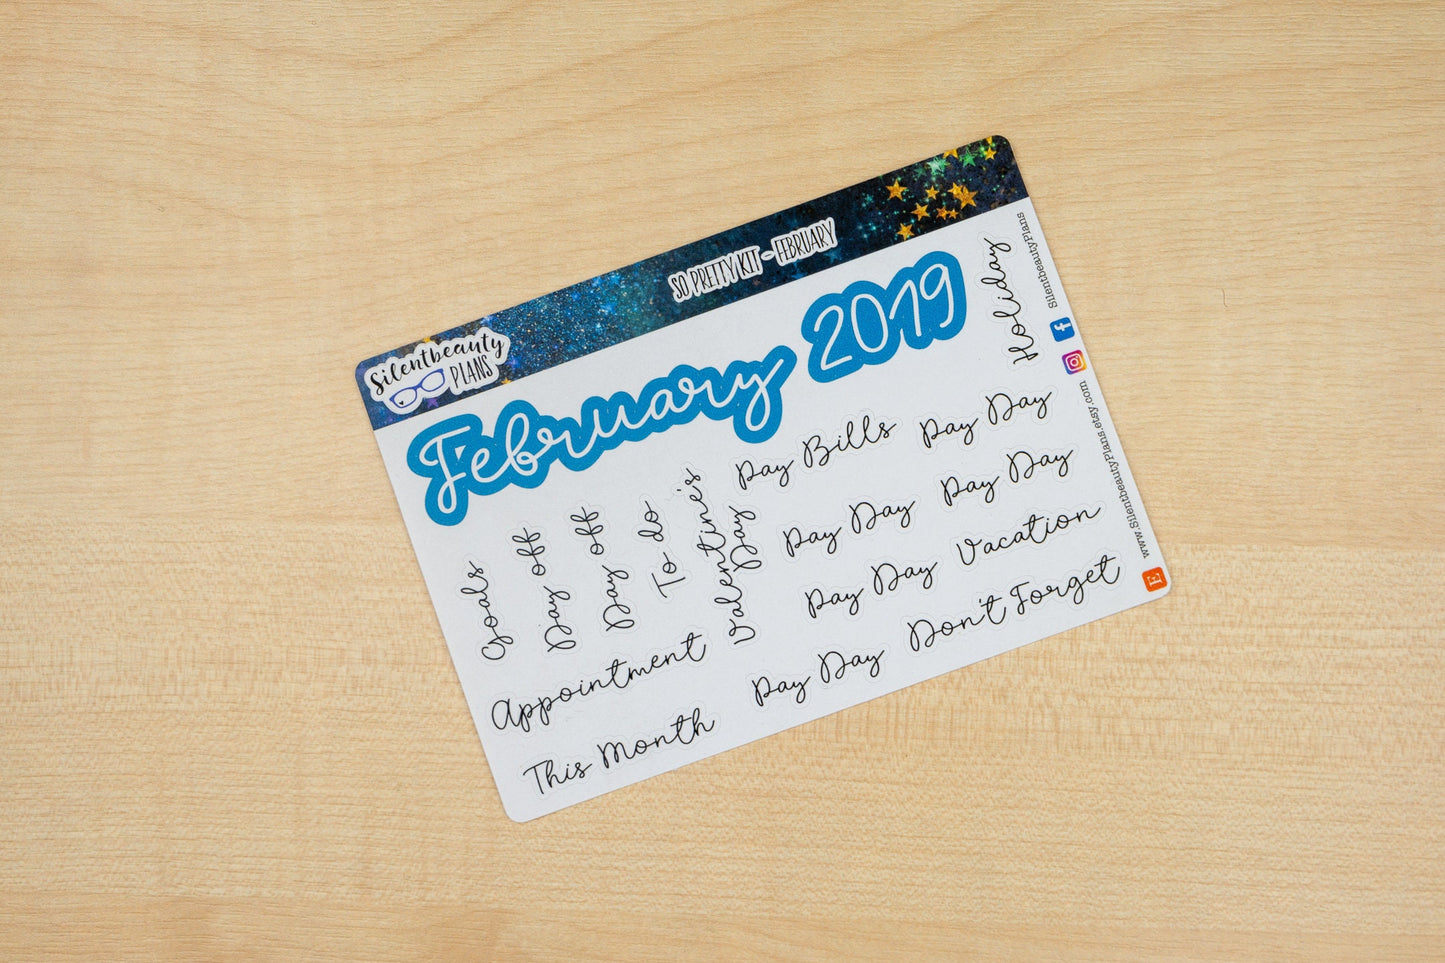 Silentbeauty
PLANS
SO PRETTY KIT - FEBRUARY
February 2019
Holiday
Pay Bills
Pay Day
Goals
Day off
Day off
To do
Valentine's
Day
Pay Day
Pay Day
Pay Day
Vacation
Appointment
Pay Day
Don't Forget
This Month
SilentbeautyPlans
www.SilentbeautyPlans.etsy.com
E